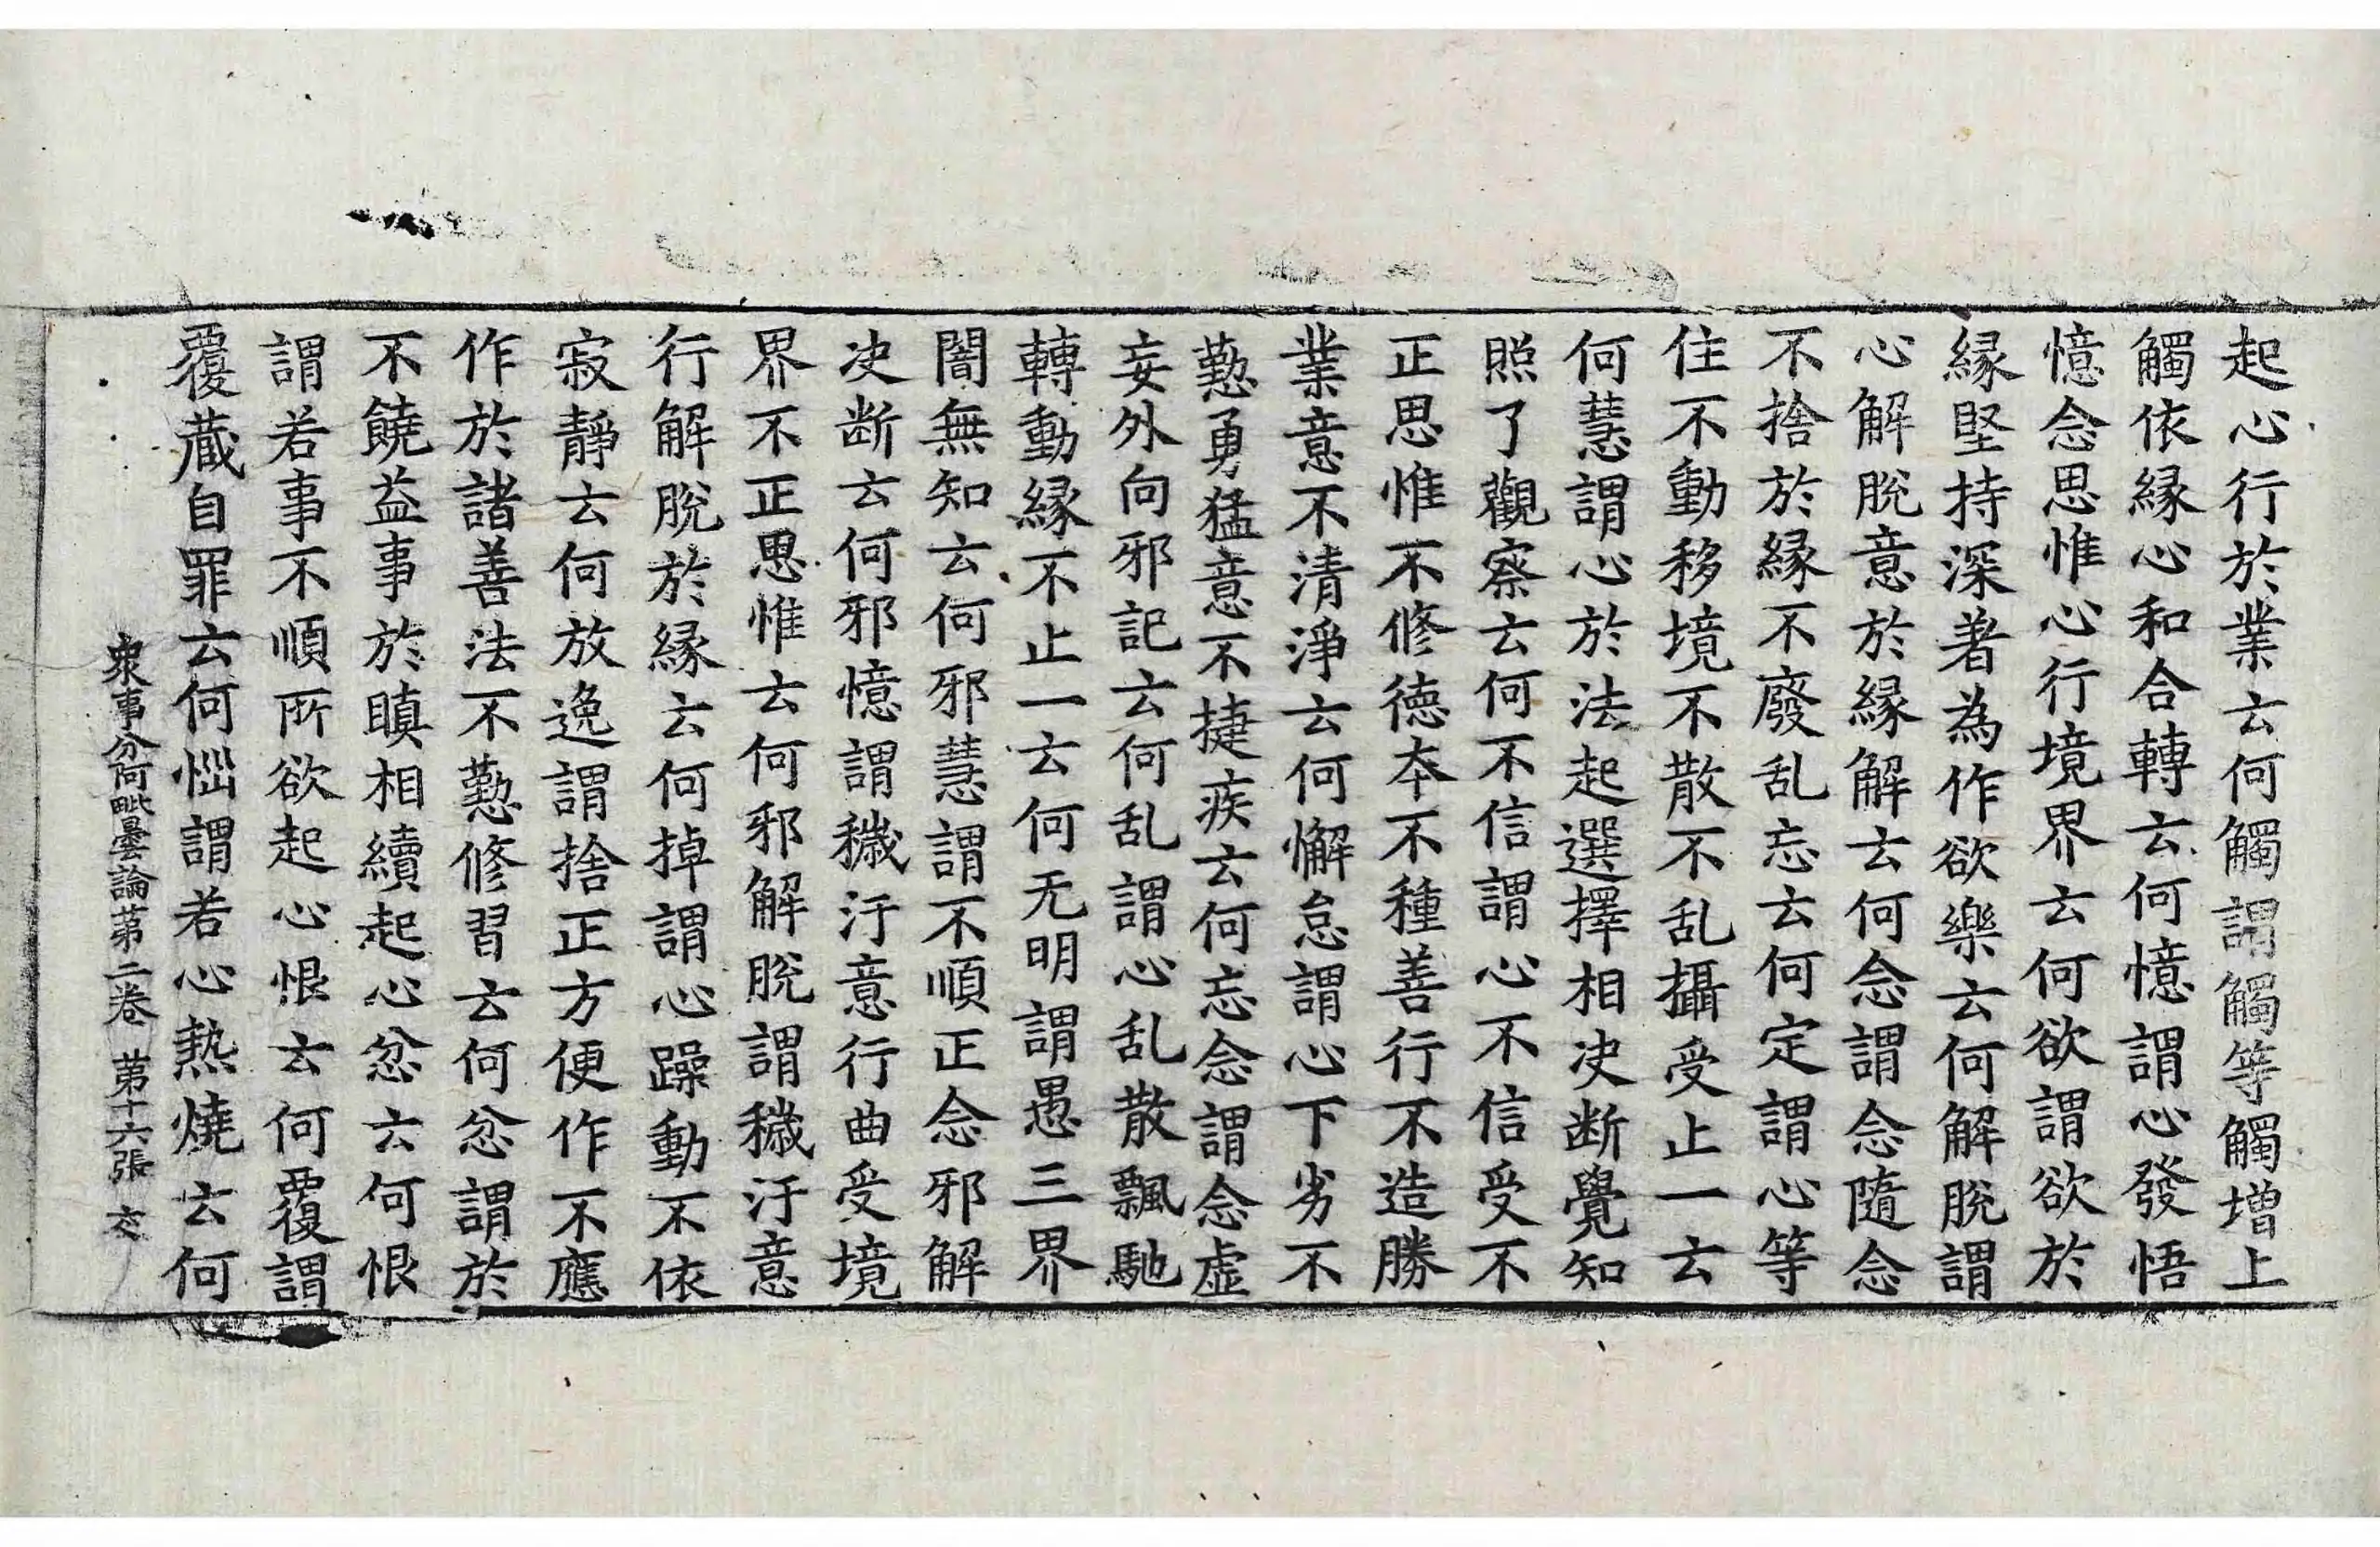 起心行於業云何觸謂觸等觸增上
觸依緣心和合轉云何憶謂心發悟
憶念思惟心行境界云何欲謂欲於
緣堅持深著為作欲樂云何解脫謂
心解脫意於緣解云何念謂念隨念
不捨於緣不廢乱忘云何定謂心等
住不動移境不散不乱攝受止一云
何慧謂心於法起選擇相决断覺知
照了觀察云何不信謂心不信受不
正思惟不修德夲不種善行不造勝
業意不清淨云何懈怠謂心下劣不
懃勇猛意不捷疾云何忘念謂念虛
妄外向邪記云何乱謂心乱散飄馳
轉動緣不止一云何无明謂愚三界
闇無知云何邪慧謂不順正念邪解
决断云何邪憶謂穢汙意行曲受境
界不正思惟云何邪解脫謂穢汙意
行解脫於緣云何掉謂心躁動不依
寂靜云何放逸謂捨正方便作不應
作於諸善法不懃修習云何忿謂於
不饒益事於瞋相續起心忿云何恨
謂若事不順所欲起心恨云何覆謂
覆藏自罪云何惱謂若心熱燒云何
衆事分阿毗曇論苐二卷 苐十六張 交